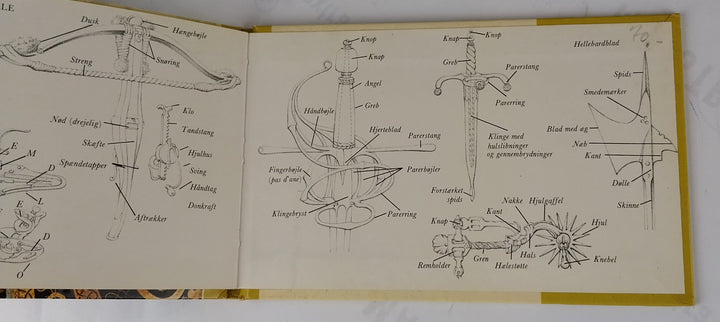 LE
Dusk
Hængebøjle
Streng
Snøring
Nød (drejelig)
Klo
Tandstang
Skæfte
Hjulhus
Spændetapper
Sving
Håndtag
Donkraft
Aftrækker
E
M
D
L
E
D
O
Knop
Knap
Angel
Greb
Håndbøjle
Hjerteblad
Parerstang
Fingerbøjle
(pas d'ane)
Parerbøjler
Klingebryst
Parerring
Knap
Knop
Greb
Parerstang
Parerring
Klinge med
hulslibninger
og gennembrydninger
Forstærket
spids
Hellebardblad
70,-
Spids
Smedemærker
Blad med æg
Næb
Kant
Dølle
Skinne
Nakke
Hjulgaffel
Knap
Kant
Hjul
Remholder
Gren
Hals
Hælestøtte
Knebel